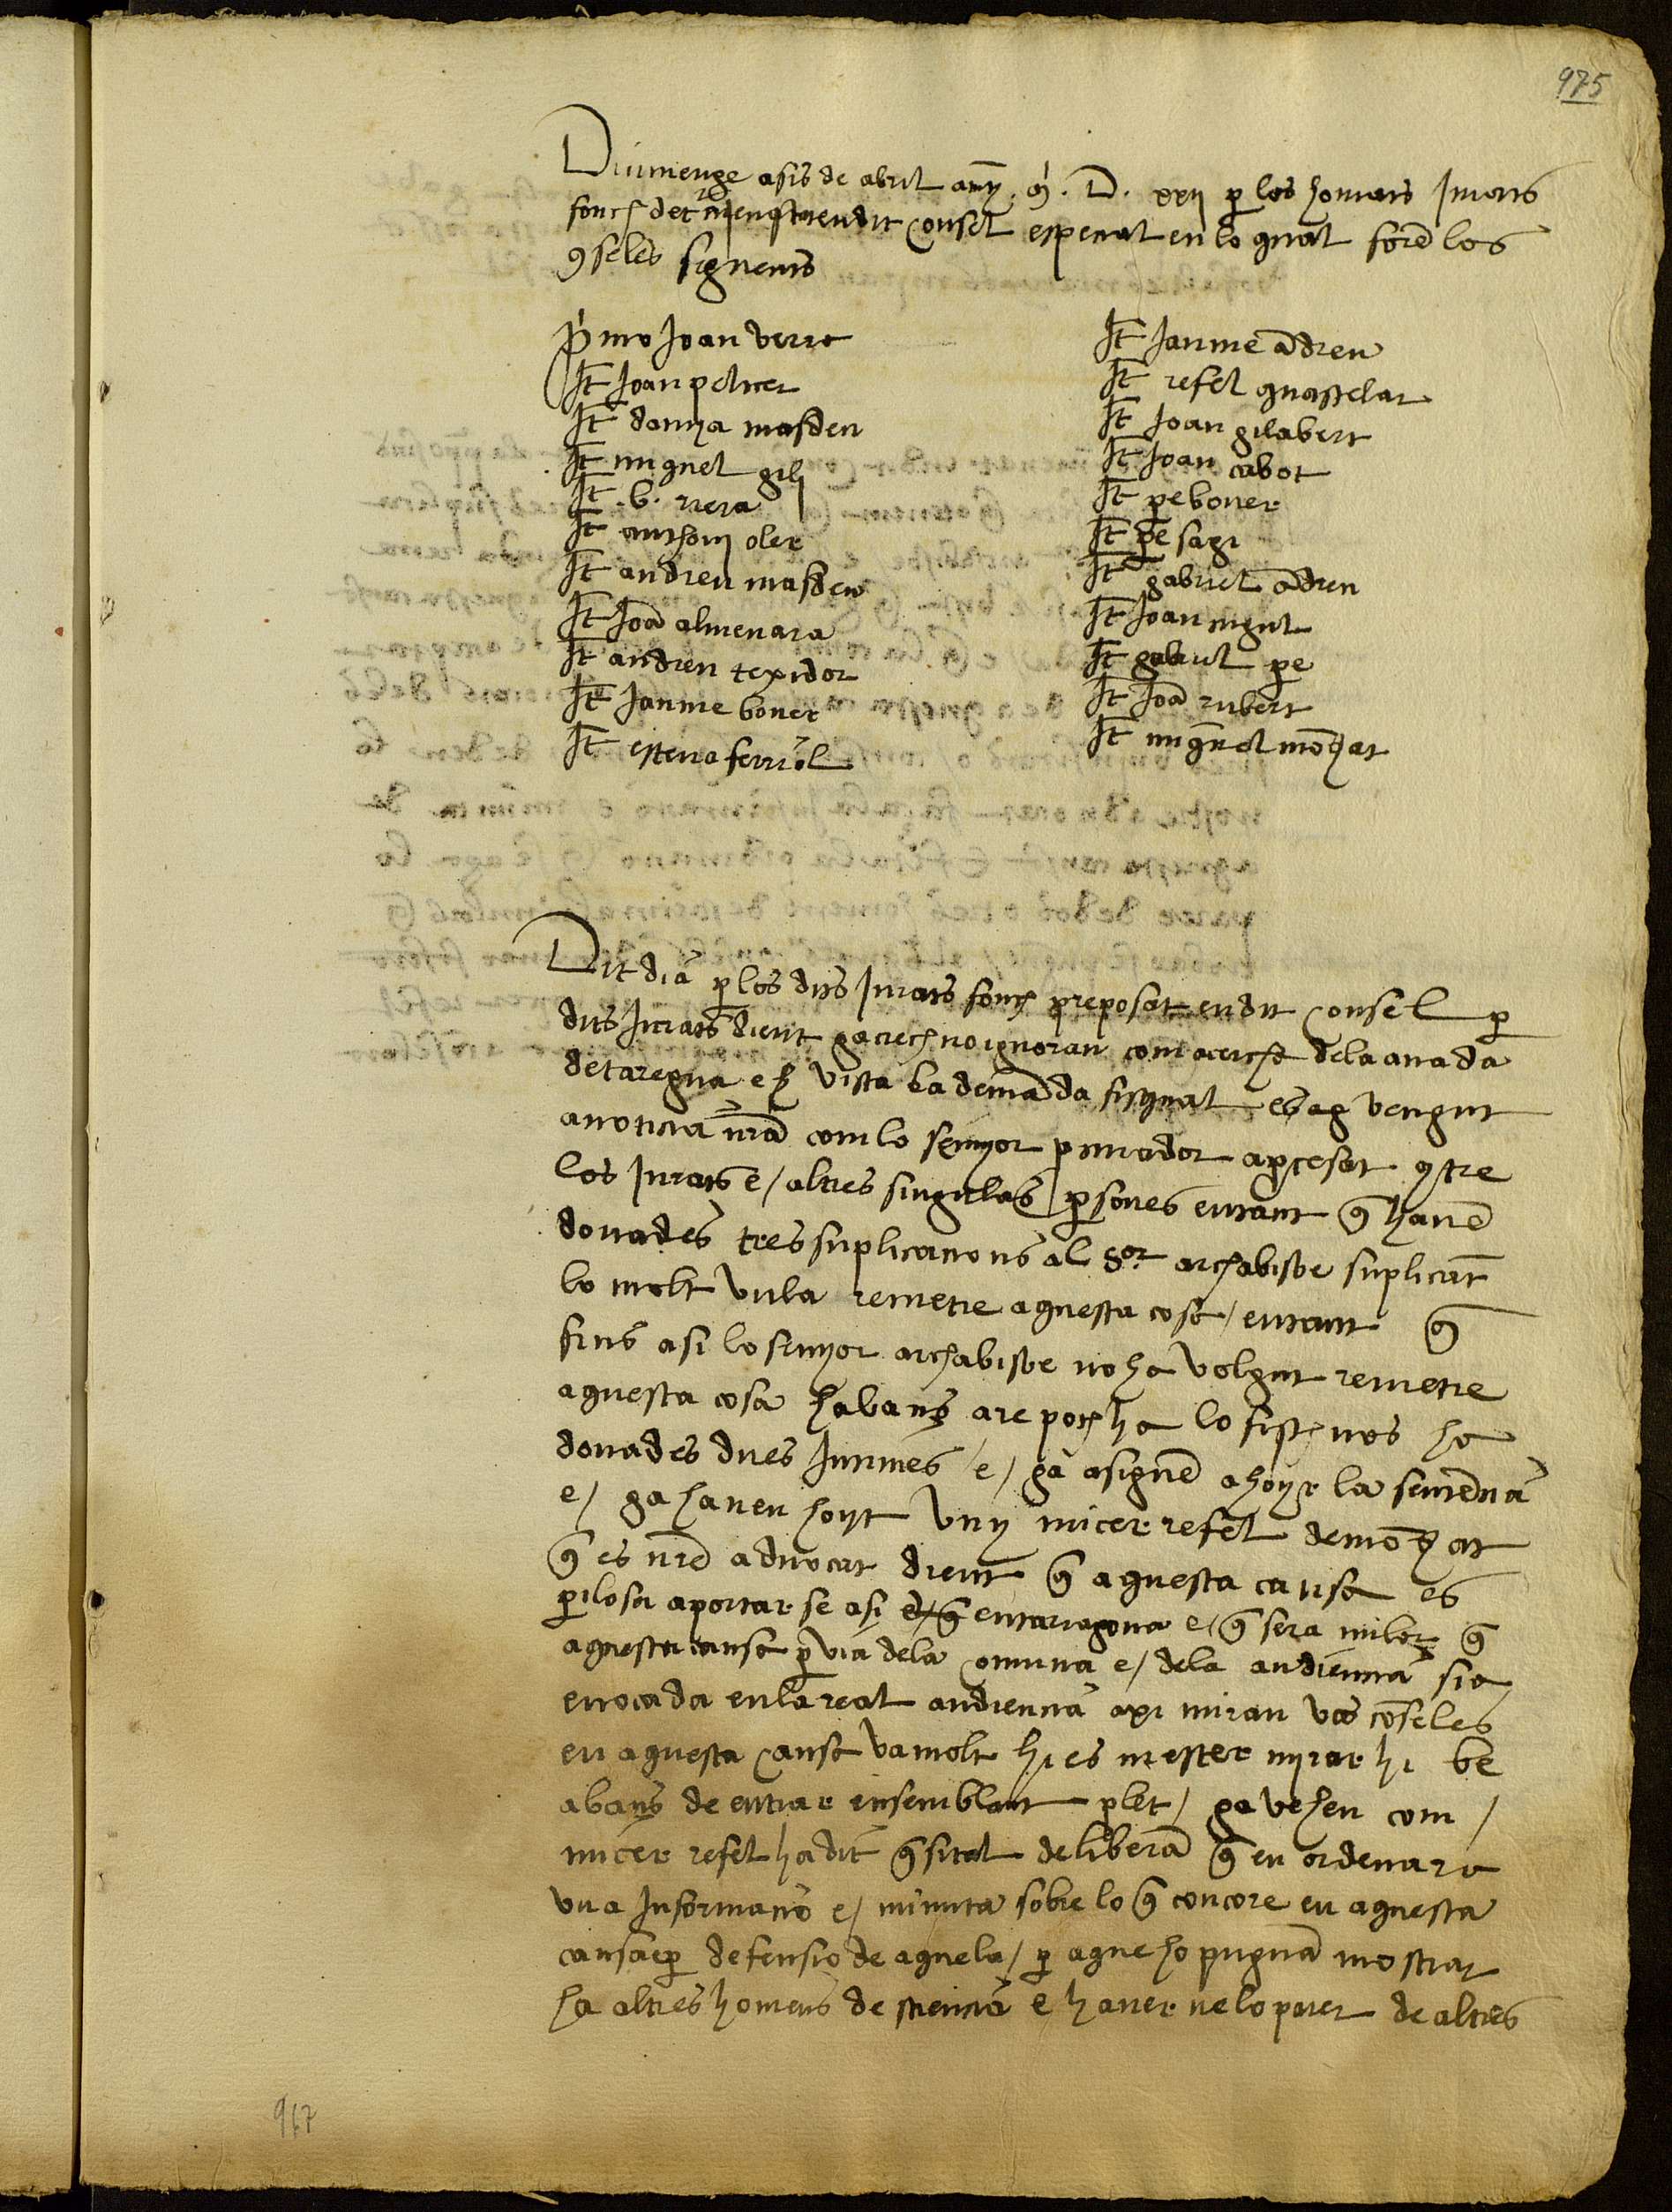 975
Diumenge a sis de abril any .M. D. xxii per los honrats Jurats
fonch det consel espeçial en lo qual foren los
conselers siguents
Primo Joan verre
It Joan pelicer
It damya masdeu
It miquel gili
It .b. riera
It anthoni oler
It andreu masdeu
It Joã almenara
It andreu texidor
It Jaume boner
It esteva ferriol
It Jaume ãdreu
It refel quasselar
It Joan gilabert
It Joan cabot
It pe boner
It pe sagi
It gabriel ãdreu
It Joan
It gabriel pe
It Joã rubert
It miquel
Dit dia per los dits Jurats fonch preposat en dit consel per
dits Jurats dient ga crech no ignoran com acerche de la anada
de taregna e vista la demãda fisqual es ag vengut
a noticia nrã com lo senyor procurador a procesat contre
los Jurats e / altres singulas persones en tant que havẽ
donades tres suplicacions al Sor archabisbe suplicãt
lo molt vula remetre aquesta cose / en tant que
fins asi lo senyor archabisbe no ha volgut remetre
aquesta cosa habans are poch ha lo fisch nos ha
donades dues Intimes e / ga asignẽ a hoyr la sentẽcia
e / ga haveu hoyt vuy micer refel de
que es nrẽ advocat dient que aquesta causa es
perilosa aportar se asi en tarragona e / que sera milor que
aquesta cause per via de la comuna e / de la audiencia sie
evocada en la real audiencia axi miran vos cõseles
en aquesta cause va molt hi es mester myrar hi be
abans de entrar en semblant plet / ga vehen com /
micer refel ha dit que si tal deliberã que en ordenara
una Informacio e / minuta sobre lo que concore en aquesta
causa e per defensio de aquela / per aque ho pugnã mostrar
ha altres homens de sciencia e haver ne lo parer de altres
967